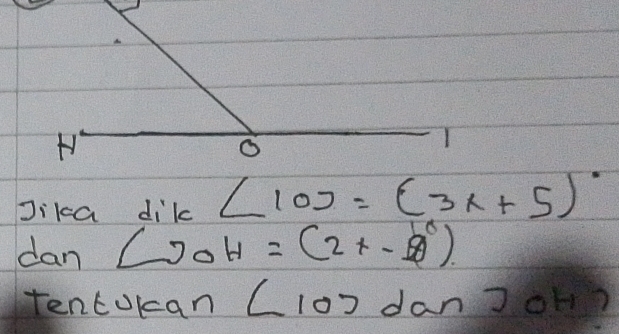 H O I
Jika dik ∠IOJ = (3x + 5)°
dan ∠JOH = (2x -
Tentukan ∠IOJ dan JOH?